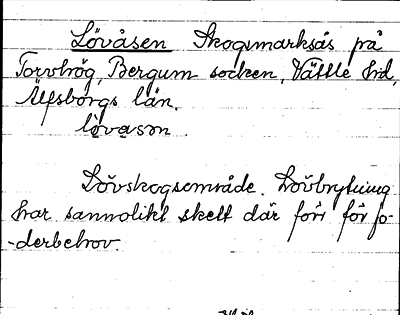 Lövåsen Skogsmarksås på
Torvhög, Bergum socken, Vättle hd,
Älfsborgs län.
lövasọn
Lövskogsområde. Lövbrytning
har sannolikt skett där förr för fo-
-derbehov.